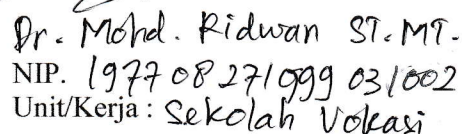 Dr. Mohd. Ridwan ST. MT.
NIP. 197708271999031002
Unit/Kerja : Sekolah Vokasi